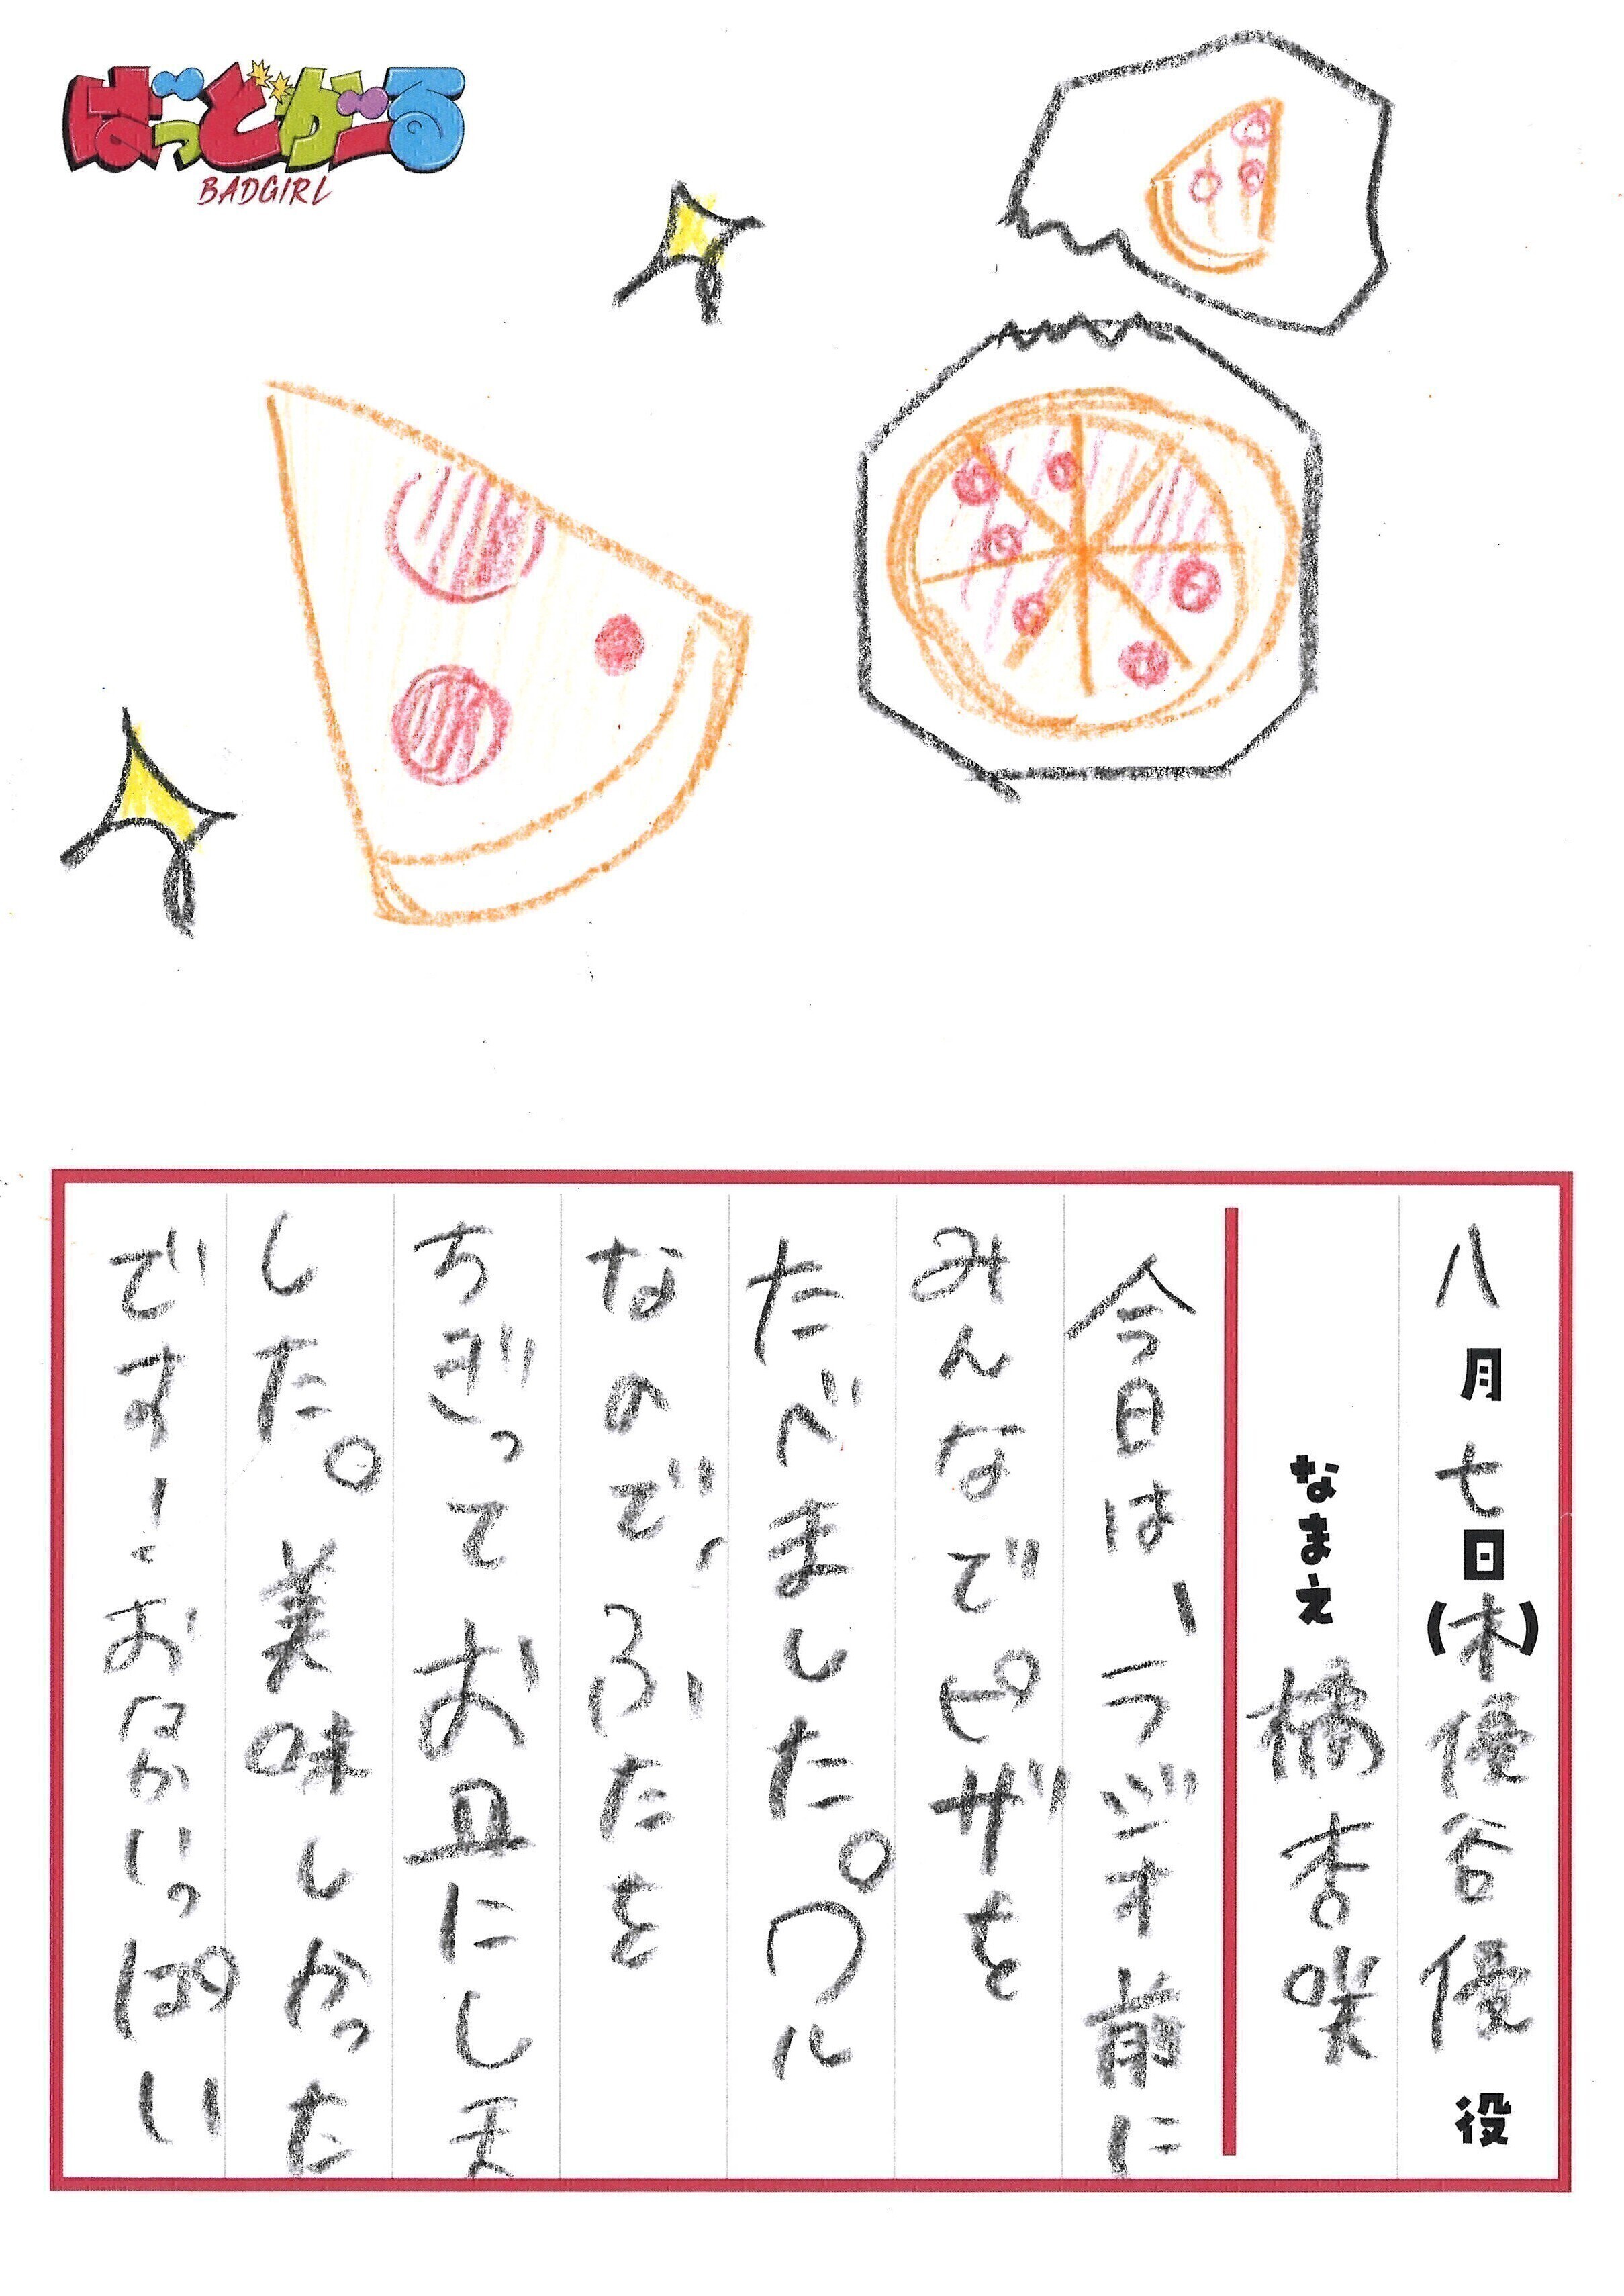 ばっどがーる
BADGIRL
八月七日(木)優谷優 役
なまえ 橘 杏咲
今日は、ラジオ前に
みんなでピザを
たべました。ワル
なので、ふたを
ちぎってお皿にしま
した。美味しかった
です!おなかいっぱい